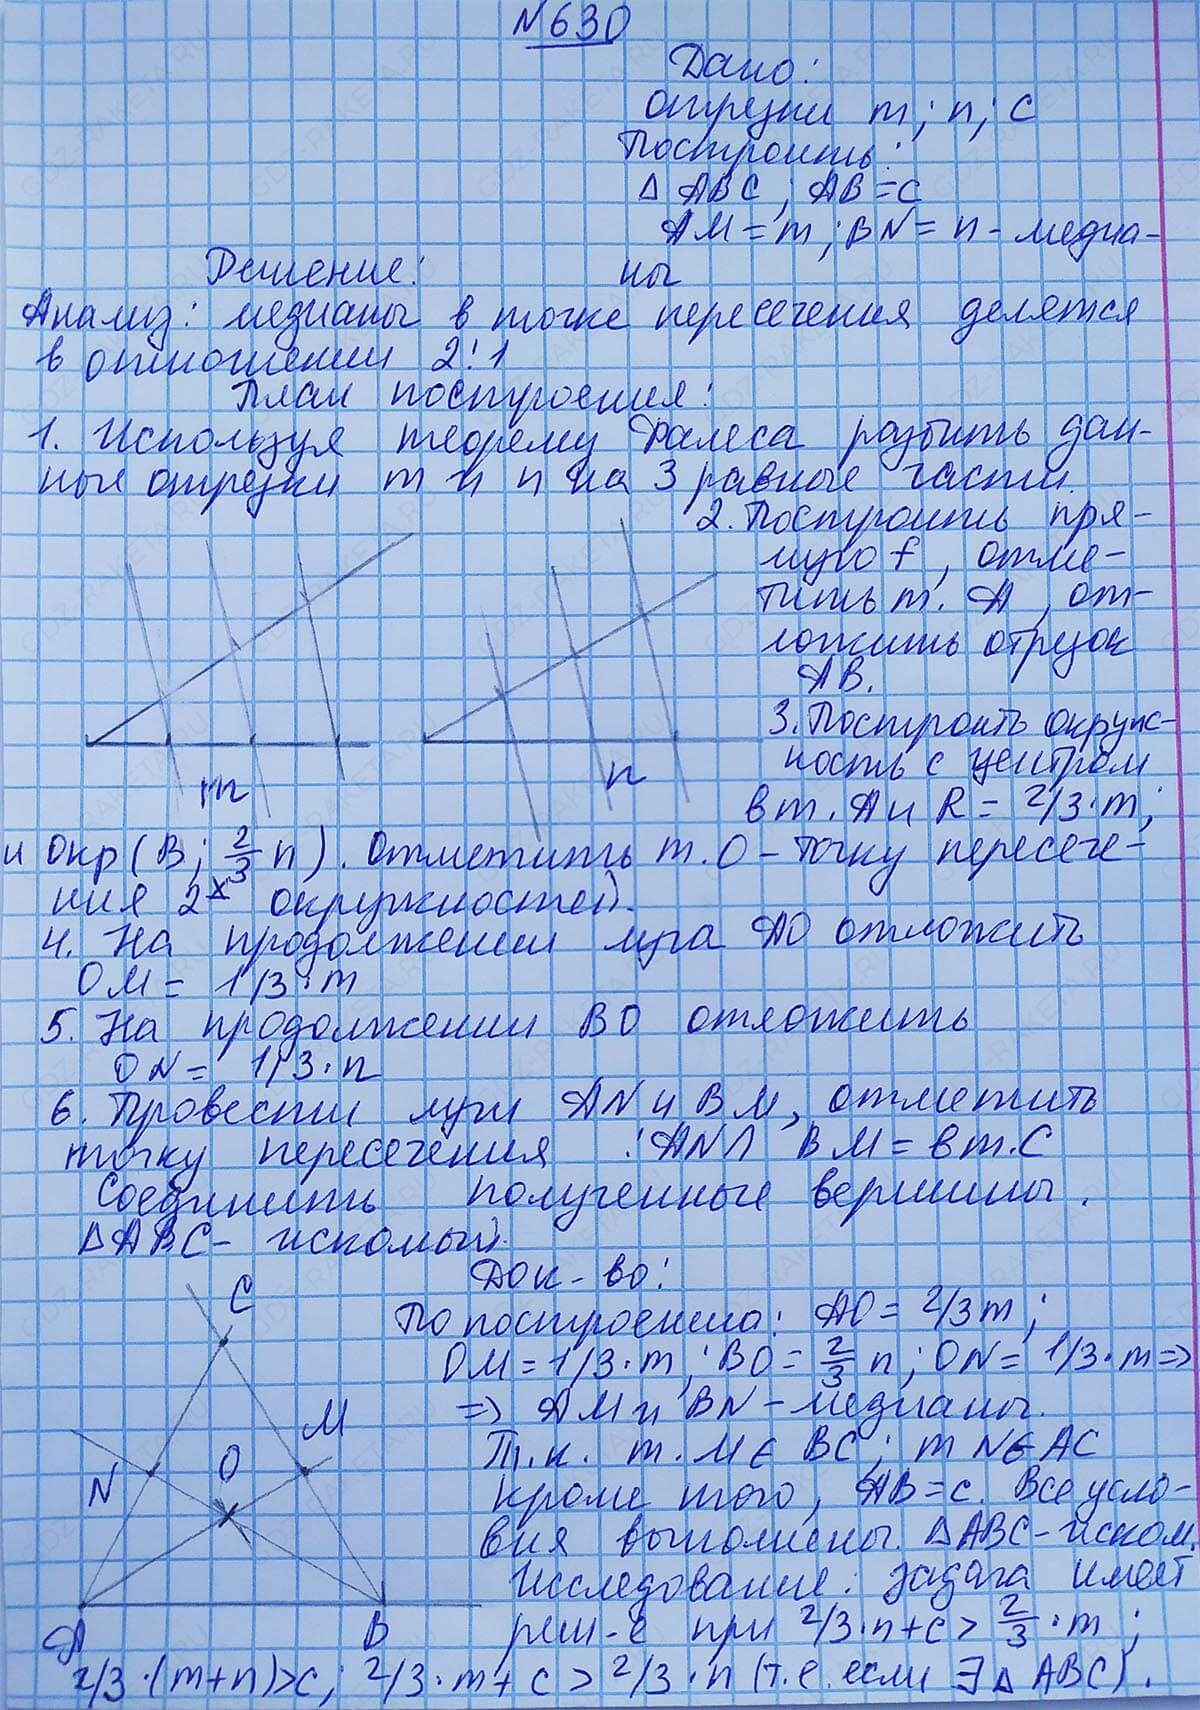 N630
Дано:
отрезки m; n; c
Построить:
Δ ABC; AB=c
AM=m; BN=n- медиа-
ны
Решение:
Анализ: медианы в точке пересечения делятся
в отношении 2:1
План построения:
1. Используя теорему Фалеса разбить дан-
ные отрезки m и n на 3 равные части.
2. Построить пря-
мую f, отме-
тить т. A, от-
ложить отрезок
AB.
3. Построить окруж-
ность с центром
в т. A и R = 2/3·m;
и Окр (B; 2/3 n). Отметить т. O - точку пересече-
ния 2х окружностей.
4. На продолжении луча AO отложить
OM = 1/3·m
5. На продолжении BO отложить
ON = 1/3·n
6. Провести лучи AN и BM, отметить
точку пересечения : AN∩ BM = в т. C
Соединить полученные вершины.
ΔABC- искомый.
m
n
Док-во:
По построению: AO = 2/3m;
OM = 1/3·m; BO = 2/3 n; ON = 1/3·m =>
=> AM и BN - медианы.
Т.к. т. M∈ BC; т N∈ AC
кроме того, AB=c. Все усло-
вия выполнены. ΔABC- иском.
Исследование: задача имеет
реш-е при 2/3·n+c > 2/3·m;
2/3·(m+n)>c; 2/3·m+c > 2/3·n (т.е. если ∃Δ ABC).
C
M
N
O
A
B
GDZ-RAKETA.RU